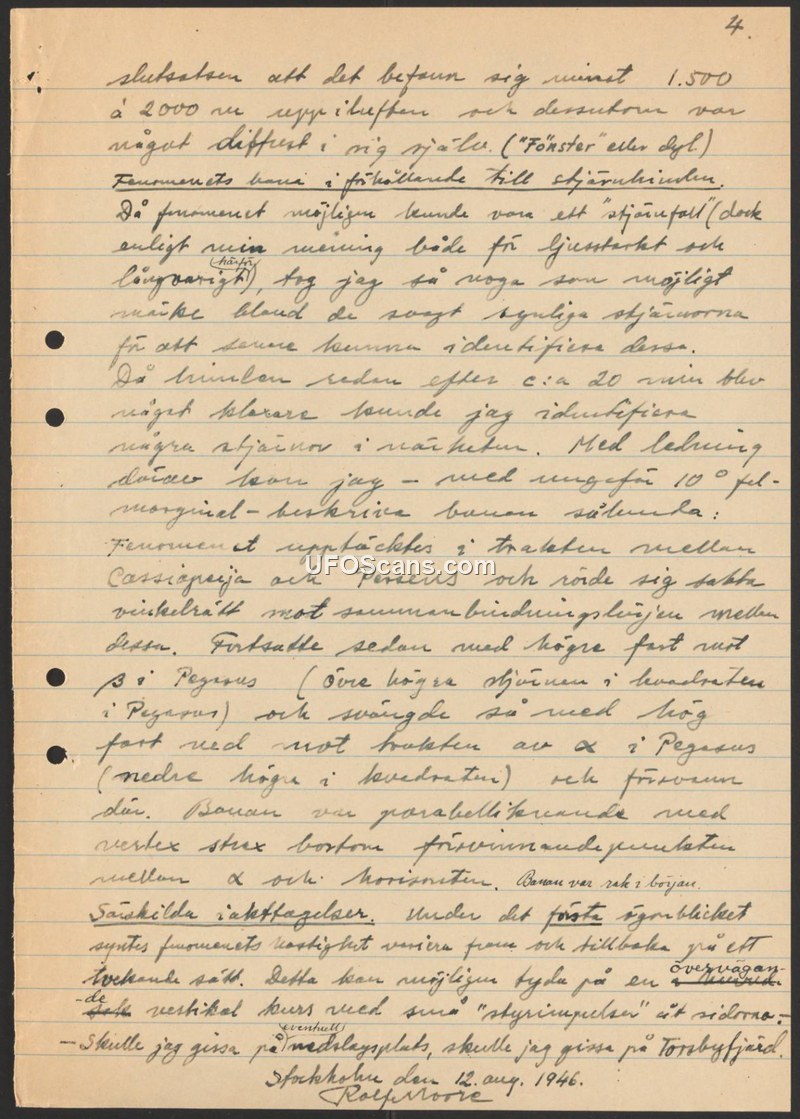 4.
slutsatsen att det befann sig minst 1.500
à 2000 m upp i luften och dessutom var
något diffust i sig själv. ("Fönster" eller dyl)
Fenomenets bana i förhållande till stjärnhimlen.
Då fenomenet möjligen kunde vara ett "stjärnfall" (dock
enligt min mening både för ljusstarkt och
(härför)
långvarigt), tog jag så noga som möjligt
märke bland de svagt synliga stjärnorna
för att senare kunna identifiera dessa.
Då himlen redan efter c:a 20 min blev
något klarare kunde jag identifiera
några stjärnor i närheten. Med ledning
därav kan jag – med ungefär 10° fel-
marginal – beskriva banan sålunda:
Fenomenet upptäcktes i trakten mellan
UFOScans.com
Cassiopeija och Perseus och rörde sig sakta
vinkelrätt mot sammanbindningslinjen mellan
dessa. Fortsatte sedan med högre fart mot
β i Pegasus (övre högra stjärnan i kvadraten
i Pegasus) och svängde så med hög
fart ned mot trakten av α i Pegasus
(nedre högra i kvadraten) och försvann
där. Banan var parabelliknande med
vertex strax bortom försvinnandepunkten
mellan α och horisonten. Banan var rak i början.
Särskilda iakttagelser. Under det första ögonblicket
syntes fenomenets hastighet variera fram och tillbaka på ett
tvekande sätt. Detta kan möjligen tyda på en övervägan-
-de vertikal kurs med små "styrimpulser" åt sidorna. –
eventuell
– Skulle jag gissa på nedslagsplats, skulle jag gissa på Torsbyfjärd.
Stockholm den 12. aug. 1946.
Rolf Moore